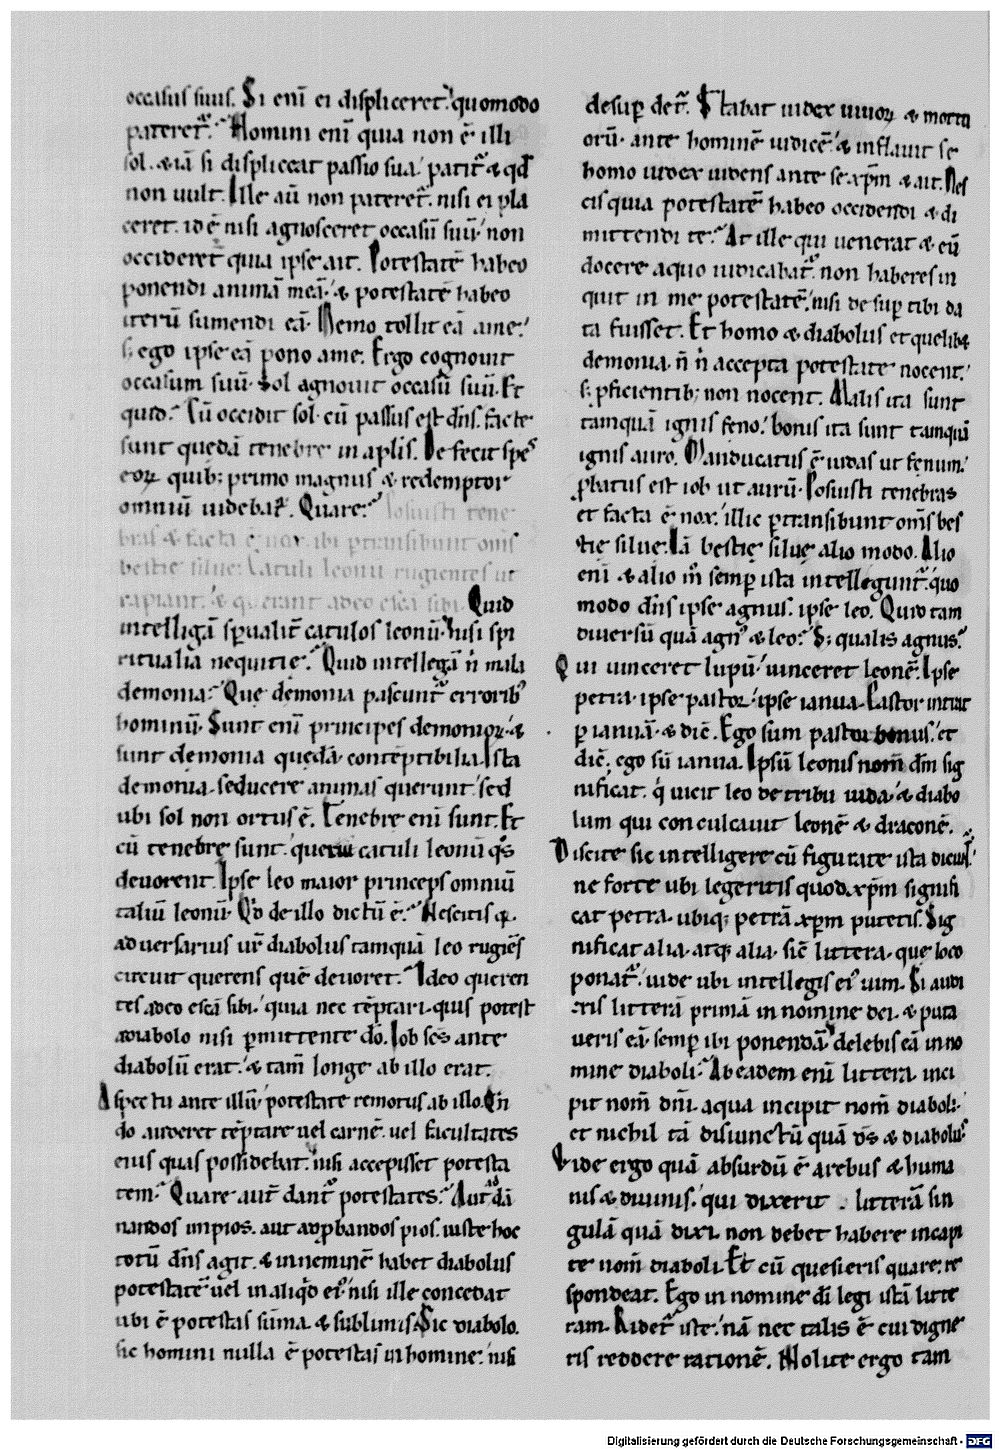 occasus suus. Si enī ei displiceret. quomodo
pateret̄. Homini enī quia non ē illi
sol. & iā si displiceat passio sua. patit̄ & qđ
non uult. Ille aū non pateret̄. nisi ei pla
ceret. id ē nisi agnosceret occasū suū. non
occideret quia ipse ait. Potestatē habeo
ponendi animā meā. & potestatē habeo
iterū sumendi eā. Nemo tollit eā a me.
s; ego ipse eā pono a me. Ergo cognouit
occasum suū. Sol agnouit occasū suū. Et
quid. Cū occidit sol. cū passus est dn̄s. facte
sunt quedā tenebre in apl̄is. Defecit spes
eoꝝ quib; primo magnus & redemptor
omniū uidebat̄. Quare. Posuisti tene
bras & facta ē nox. ibi ꝑtransibunt om̄s
bestie silue. Catuli leonū rugientes ut
rapiant. & querant a deo escā sibi. Quid
intelligā sp̄ualit̄ catulos leonū. nisi spi
ritualia nequitie. Quid intellegā n̄ mala
demonia. Que demonia pascunt̄ errorib;
hominū. Sunt enī principes demonioꝝ. &
sunt demonia quędā contēptibilia. Ista
demonia seducere animas querunt. sed
ubi sol non ortus ē. Tenebre enī sunt. Et
cū tenebrę sunt. querūt catuli leonū q̄s
deuorent. Ipse leo maior princeps omniū
taliū leonū. Qd̄ de illo dictū ē. Nescitis q̄
aduersarius ur̄ diabolus tamquā leo rugiēs
circuit querens quē deuoret. Ideo queren
tes a deo escā sibi. quia nec tēptari quis potest
a diabolo nisi ꝑmittente dō. Iob sc̄s ante
diabolū erat. & tam̄ longe ab illo erat.
Aspectu ante illū. potestate remotus ab illo. Qn̄
do auderet tēptare uel carnē. uel facultates
eius quas possidebat. nisi accepisset potesta
tem. Quare aut̄ dant̄ potestates. Aut ad dā
nandos impios. aut ad ꝓbandos pios. iuste hoc
totū dn̄s agit. & in neminē habet diabolus
potestatē uel in aliq̄d ei. nisi ille concedat
ubi ē potestas sūma & sublimis. Sic diabolo.
sic homini nulla ē potestas in homine. nisi
desuꝑ det̄. Stabat iudex uiuoꝝ & mortu
orū. ante hominē iudicē. & inflauit se
homo iudex uidens ante se xp̄m & ait. Nes
cis quia potestatē habeo occidendi & di
mittendi te. At ille qui uenerat & eū
docere a quo iudicabat̄. non haberes in
quit in me potestatē. nisi desuꝑ tibi da
ta fuisset. Et homo & diabolus et quelib&
demonia. n̄ n̄ accepta potestate nocent.
s; ꝓficientib; non nocent. Malis ita sunt
tamquā ignis feno. bonis ita sunt tamquā
ignis auro. Manducatus ē iudas ut fenum.
ꝓbatus est iob ut aurū. Posuisti tenebras
et facta ē nox. illic ꝑtransibunt om̄s bes
tię silue. Iā bestię siluę alio modo. Alio
enī & alio m̄ semꝑ ista intelleguntr̄. quo
modo dn̄s ipse agnus. ipse leo. Quid tam
diuersū quā agn; & leo. S; qualis agnus.
Qui uinceret lupū. uinceret leonē. Ipse
petra. ipse pastor. ipse ianua. Pastor intrat
ꝑ ianuā. & dic̄. Ego sum pastor bonus. et
dic̄. ego sū ianua. Ipsū leonis nom̄ dn̄m sig
nificat. q̄ uicit leo de tribu iuda. & diabo
lum qui conculcauit leonē & draconē.
Discite sic intelligere cū figurate ista dicunt̄
ne forte ubi legeritis quod xp̄m signifi
cat petra. ubiq; petrā xp̄m putetis. Sig
nificat alia atq; alia. sic̄ littera. que loco
ponat̄. uide ubi intellegis ei; uim. Si audi
eris litterā primā in nomine dei. & puta
ueris eā semꝑ ibi ponendā. delebis eā in no
mine diaboli. Ab eadem enī littera inci
pit nom̄ dn̄i. a qua incipit nom̄ diaboli.
et nichil tā disiunctū quā ds̄ & diabolus.
Vide ergo quā absurdū ē a rebus & huma
nis & diuinis. qui dixerit . litterā sin
gulā quā dixi. non debet habere in capi
te nom̄ diaboli. Et cū quesieris quare. re
spondeat. Ego in nomine dī legi istā litte
ram. Ridet̄ iste. nā nec talis ē cui digne
tis reddere rationē. Nolite ergo tam
Digitalisierung gefördert durch die Deutsche Forschungsgemeinschaft - DFG